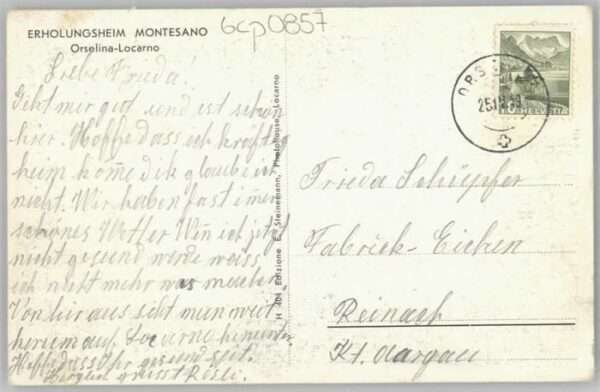 6cp0857
ERHOLUNGSHEIM MONTESANO
Orselina-Locarno
Liebe Frieda!
Geht mer gut und ist schön
hier. Hoffe dass ich kräftig
heim kome dik glaube ich
nicht. Wir haben fast imer
schönes Wetter Wen ich jetzt
nicht gesund werde weiss
ich nicht mehr was machen
Von hier aus seht man weit
herum auf Locarno herunter
Hoffe dass Ihr gesund seit.
Herzlich grüsst Rösli.
H 404 Edizione E. Steinemann, Photohouse, Locarno
ORSELINA
HELVETIA
Frieda Schüpfer
Fabrick-Eichen
Reinach
Kt. Aargau